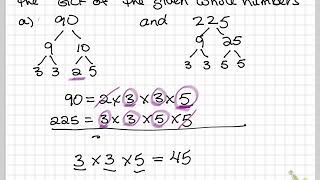 the GCF of the given whole numbers
a) 90 and 225
9 10 9 25
3 3 2 5 3 3 5 5
90 = 2 x 3 x 3 x 5
225 = 3 x 3 x 5 x 5
3 x 3 x 5 = 45